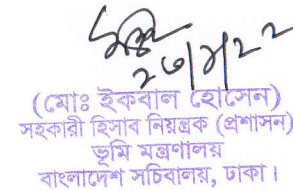 ২৩/৮/২২
(মোঃ ইকবাল হোসেন)
সহকারী হিসাব নিয়ন্ত্রক (প্রশাসন)
ভূমি মন্ত্রণালয়
বাংলাদেশ সচিবালয়, ঢাকা।